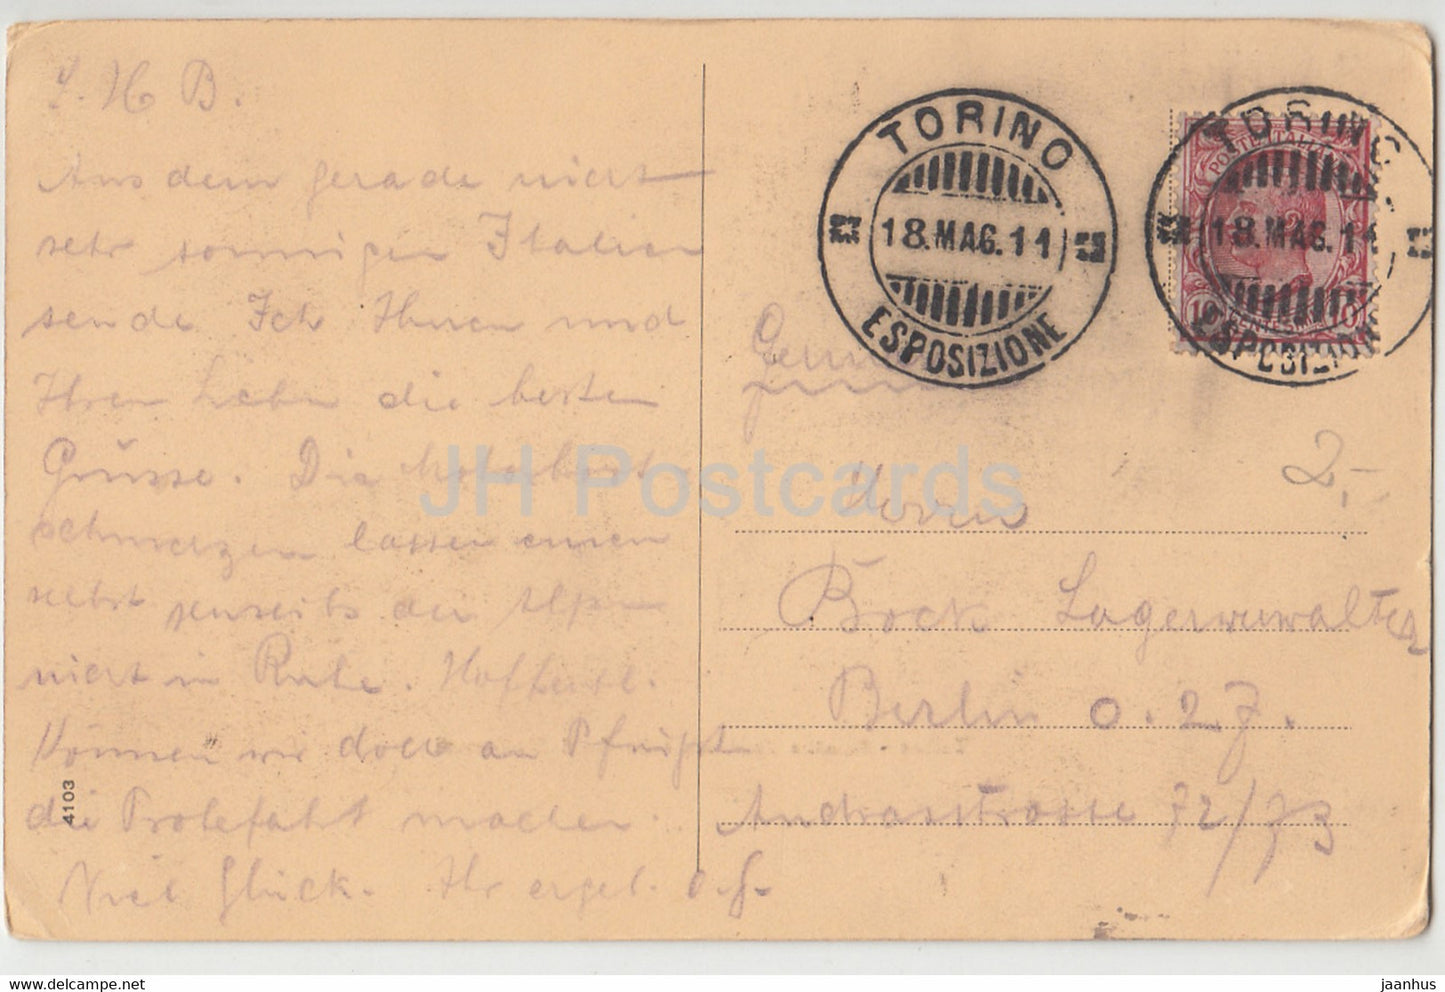 L. H. B.
Aus dem gerade nicht
sehr sonnigen Italien
sende Ich Ihnen und
Ihren Lieben die besten
Grüsse. Die
schmerzen lassen einen
selbst jenseits der Alpen
nicht in Ruhe. Hoffentl.
Können wir doch an Pfingst
die Probefahrt machen.
Viel Glück. Ihr ergeb. O. J.
4103
TORINO
18.MAG.11
ESPOSIZIONE
TORINO
18.MAG.11
ESPOSIZIONE
POSTE ITALIANE
10 CENTESIMI 10
2,-
Herrn
Bock Lagerverwalter
Berlin O. 27.
Andreasstrasse 72/73
JH Postcards
jaanhus